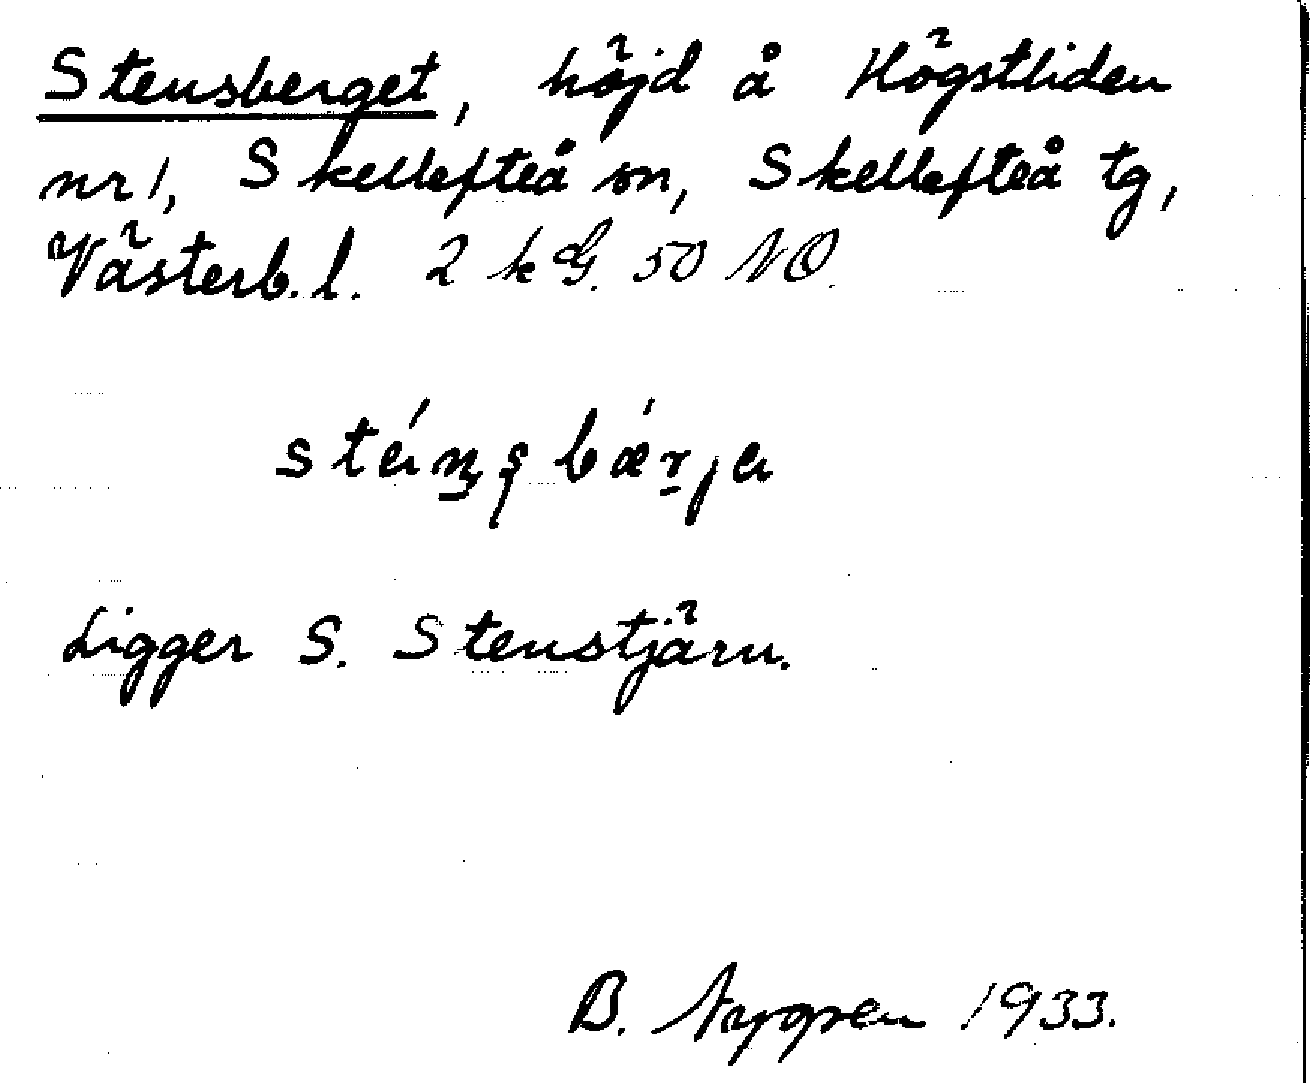 Stensberget, höjd å Högstliden
nr 1, Skellefteå sn, Skellefteå tg,
Västerb. l. 2 k G. 50 NO.
Ligger S. Stenstjärn.
B. Nygren 1933.